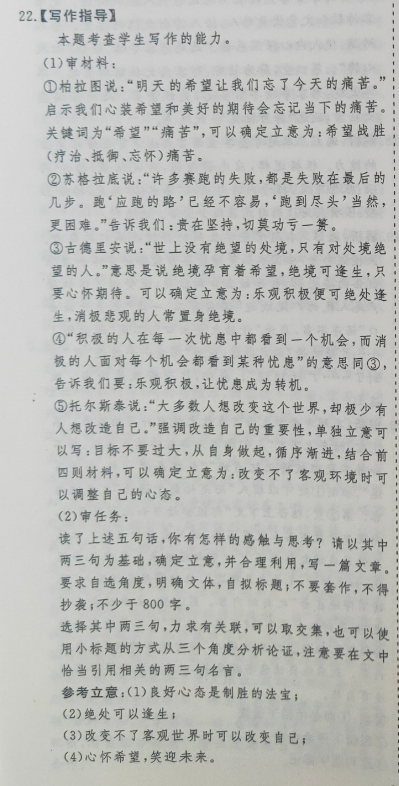 22.【写作指导】
本题考查学生写作的能力。
(1)审材料：
①柏拉图说：“明天的希望让我们忘了今天的痛苦。”
启示我们心装希望和美好的期待会忘记当下的痛苦。
关键词为“希望”“痛苦”，可以确定立意为：希望战胜
(疗治、抵御、忘怀)痛苦。
②苏格拉底说：“许多赛跑的失败，都是失败在最后的
几步。跑‘应跑的路’已经不容易，‘跑到尽头’当然，
更困难。”告诉我们：贵在坚持，切莫功亏一篑。
③古德里安说：“世上没有绝望的处境，只有对处境绝
望的人。”意思是说绝境孕育着希望，绝境可逢生，只
要心怀期待。可以确定立意为：乐观积极便可绝处逢
生，消极悲观的人常置身绝境。
④“积极的人在每一次忧患中都看到一个机会，而消
极的人面对每个机会都看到某种忧患”的意思同③，
告诉我们要：乐观积极，让忧患成为转机。
⑤托尔斯泰说：“大多数人想改变这个世界，却极少有
人想改造自己。”强调改造自己的重要性，单独立意可
以写：目标不要过大，从自身做起，循序渐进，结合前
四则材料，可以确定立意为：改变不了客观环境时可
以调整自己的心态。
(2)审任务：
读了上述五句话，你有怎样的感触与思考？请以其中
两三句为基础，确定立意，并合理利用，写一篇文章。
要求自选角度，明确文体，自拟标题；不要套作，不得
抄袭；不少于 800 字。
选择其中两三句，力求有关联，可以取交集，也可以使
用小标题的方式从三个角度分析论证，注意要在文中
恰当引用相关的两三句名言。
参考立意：(1)良好心态是制胜的法宝；
(2)绝处可以逢生；
(3)改变不了客观世界时可以改变自己；
(4)心怀希望，笑迎未来。